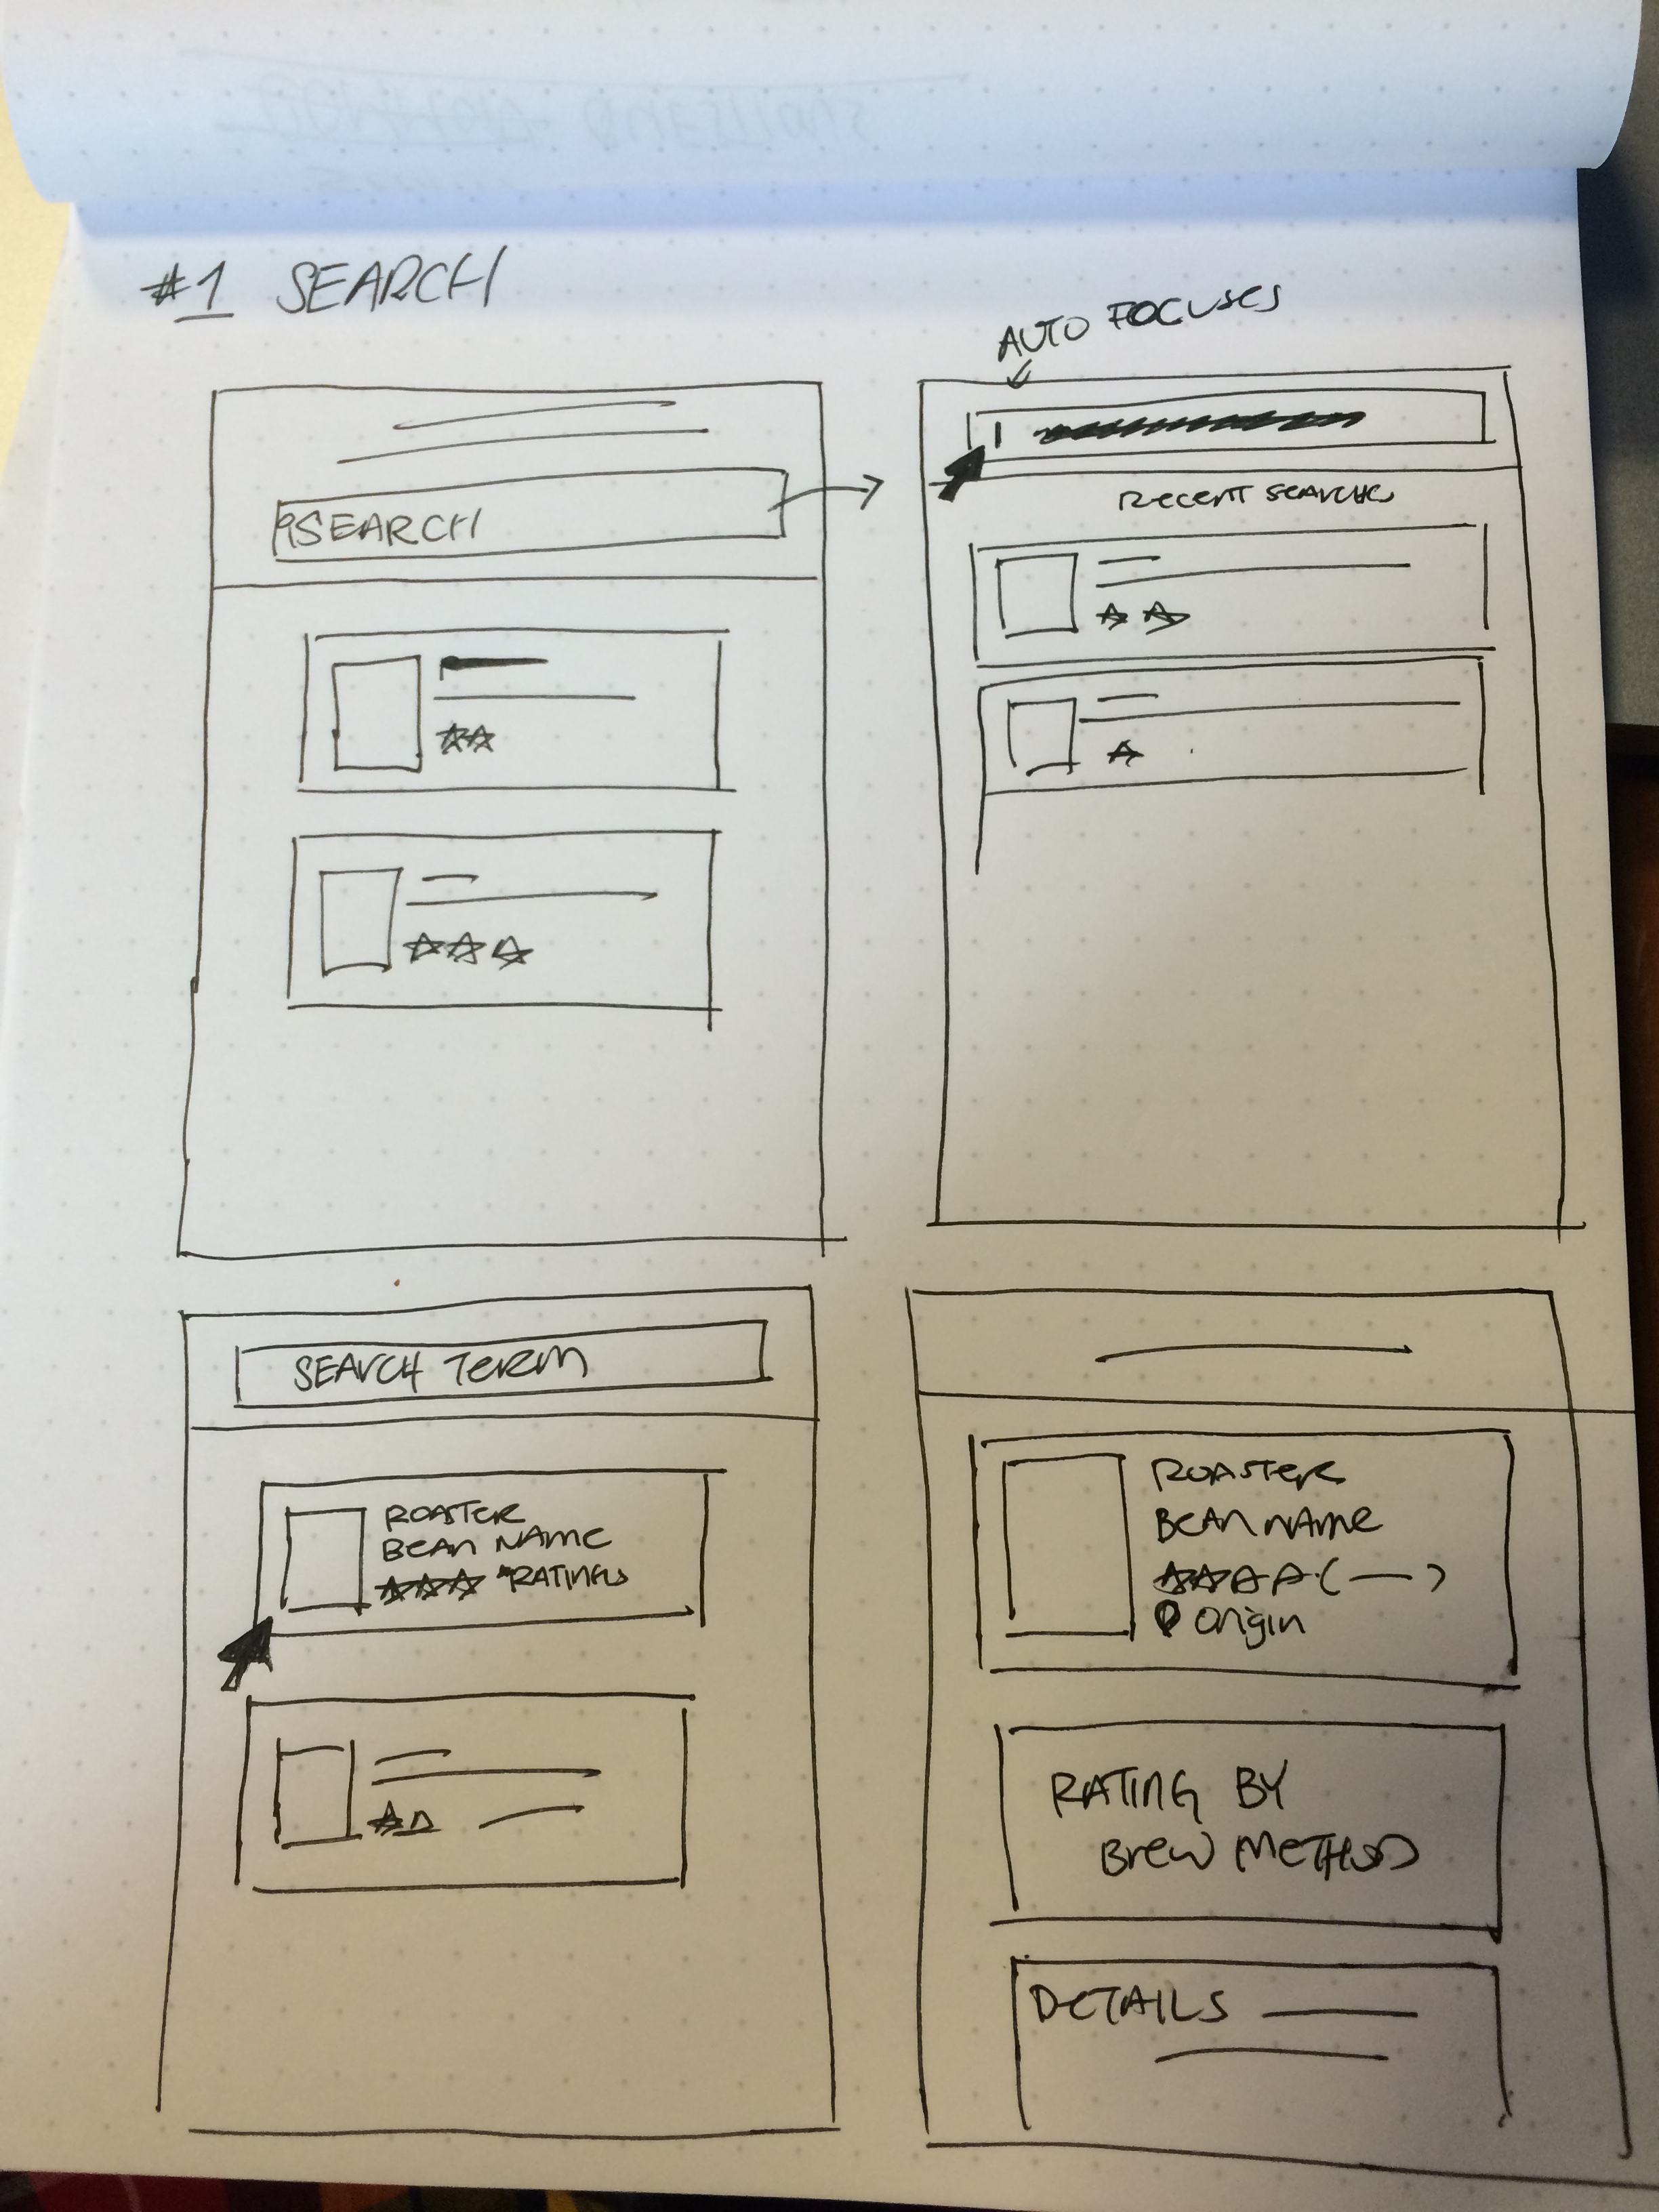 #1 SEARCH
AUTO FOCUSES
SEARCH
RECENT SEARCHES
SEARCH TERM
ROASTER
BEAN NAME
RATINGS
ROASTER
BEAN NAME
( — )
Origin
RATING BY
BREW METHOD
DETAILS